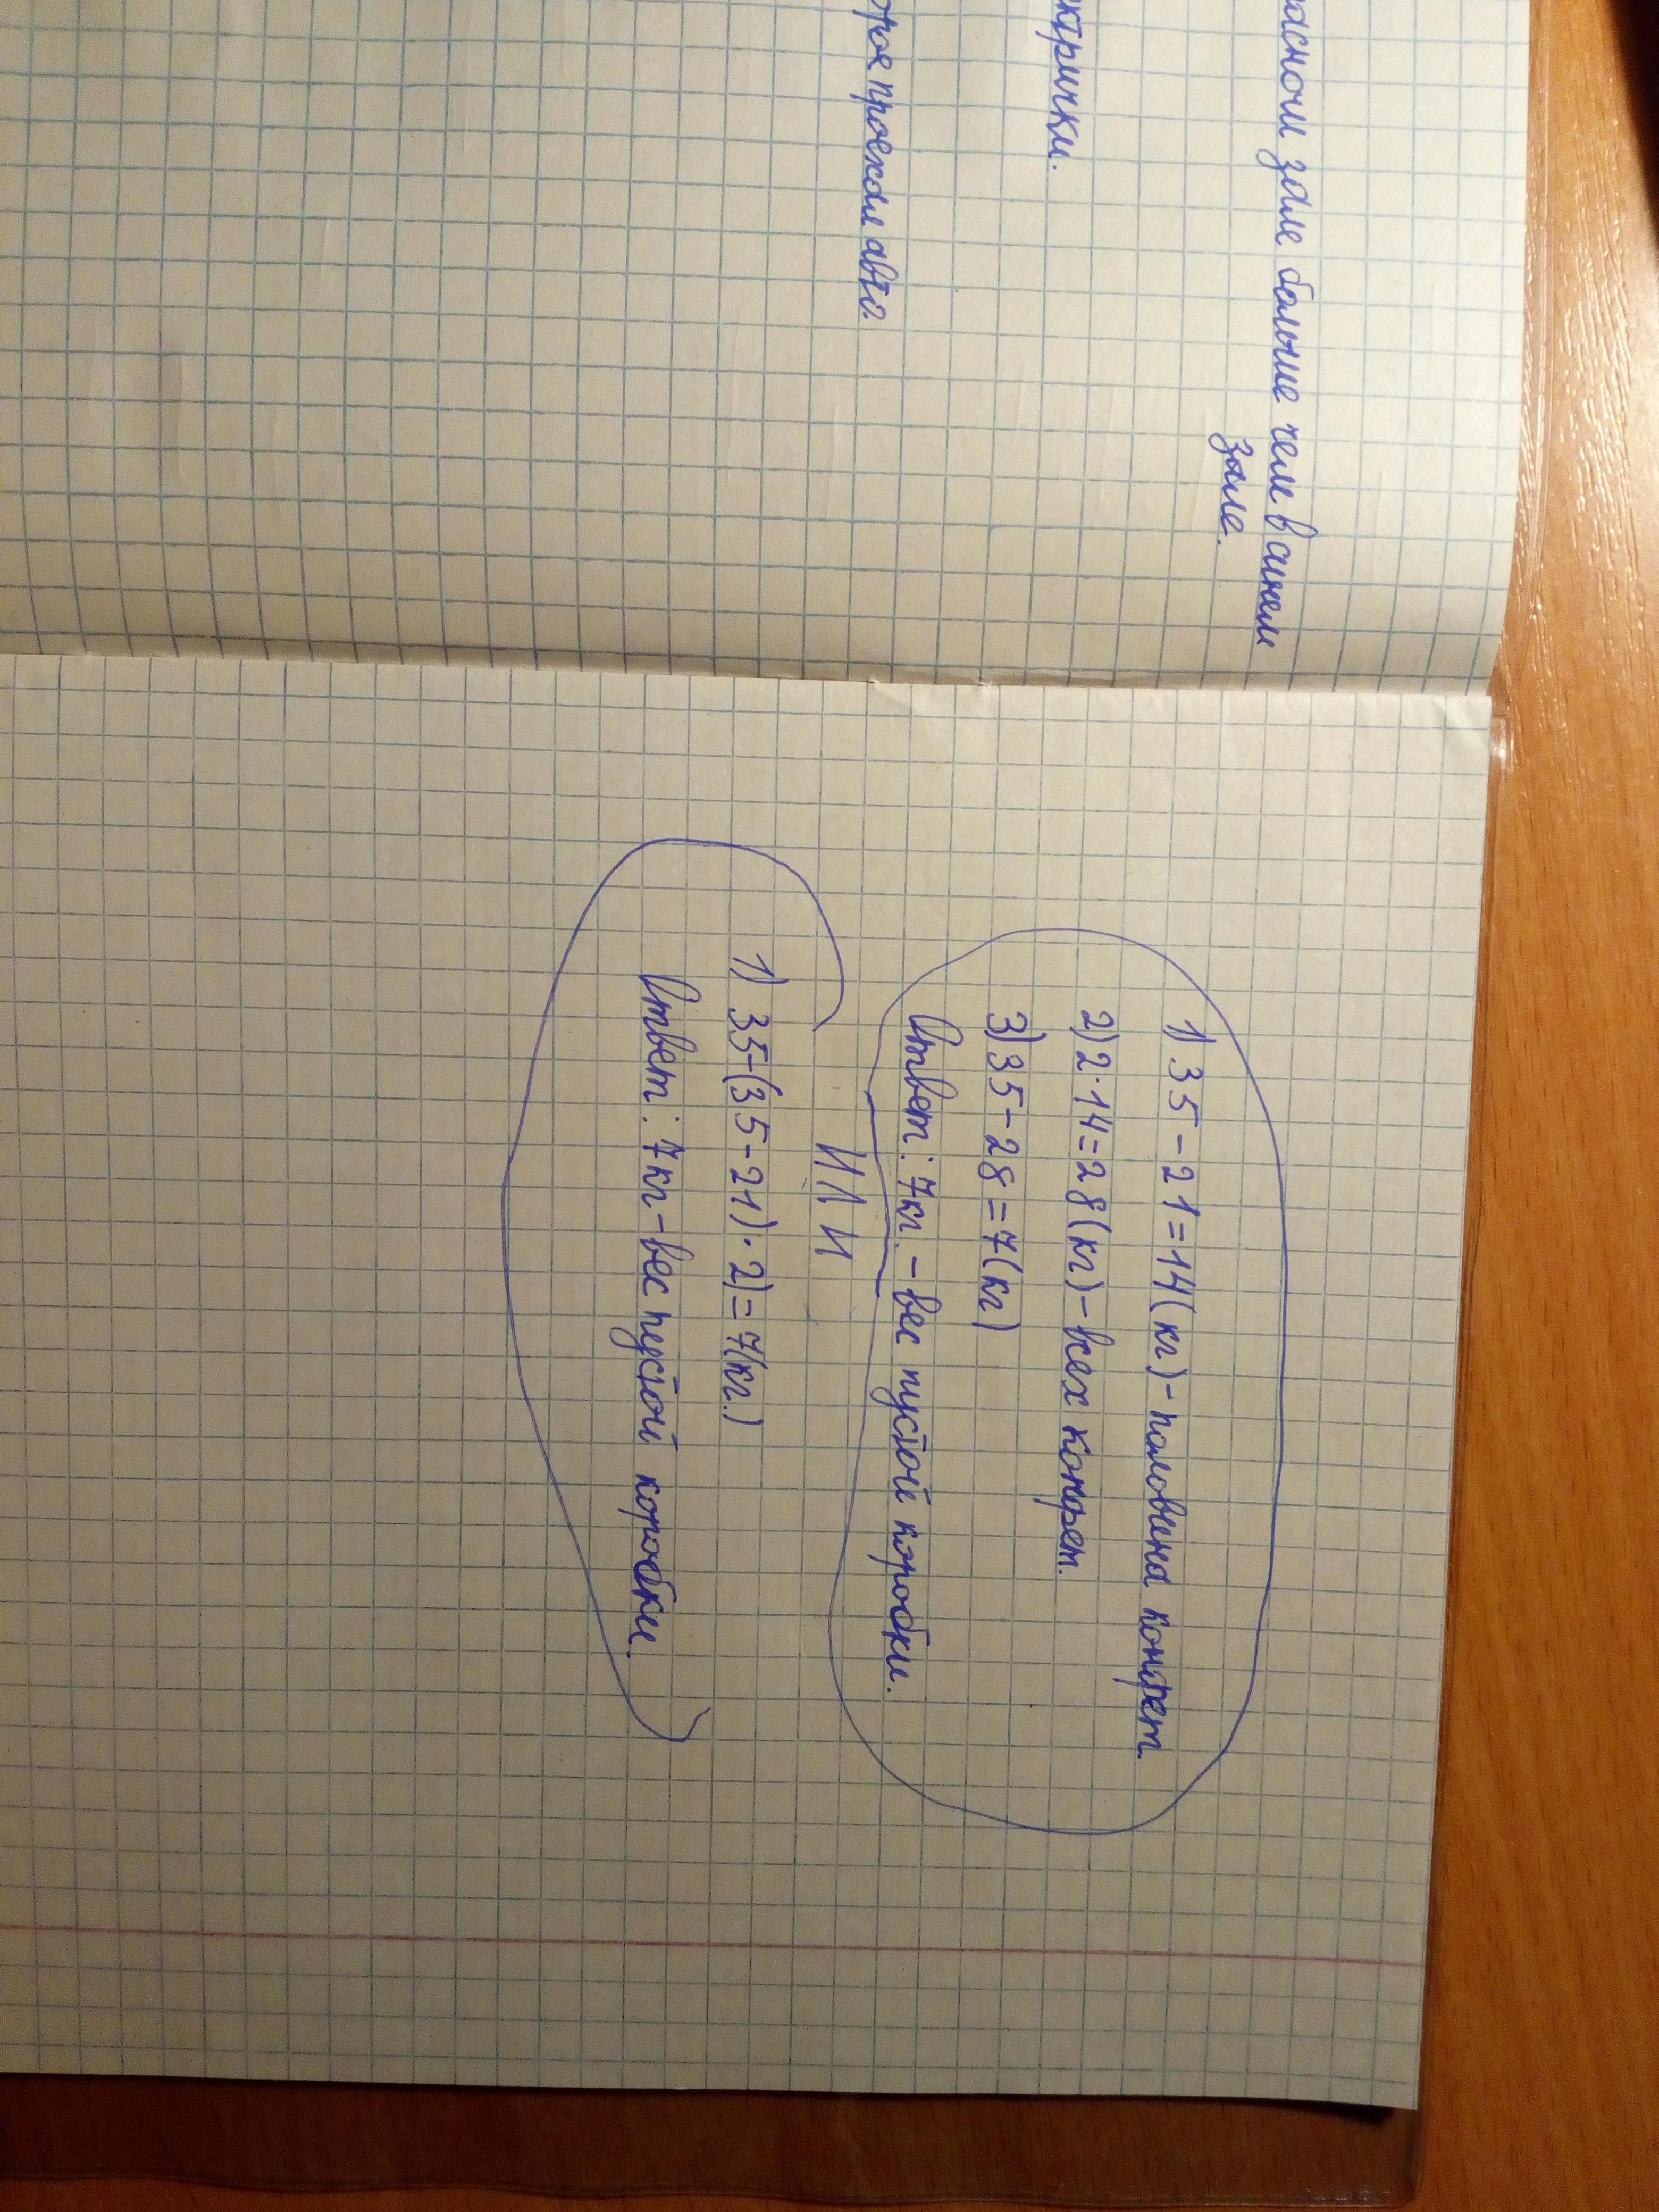 зале больше чем в синем
зале.
проехал авто.
1) 35-21=14(кг)-половина конфет
2) 2·14=28(кг)-всех конфет.
3) 35-28=7(кг)
Ответ: 7кг.-вес пустой коробки.
ИЛИ
1) 35-(35-21)·2)=7(кг.)
Ответ: 7кг-вес пустой коробки.